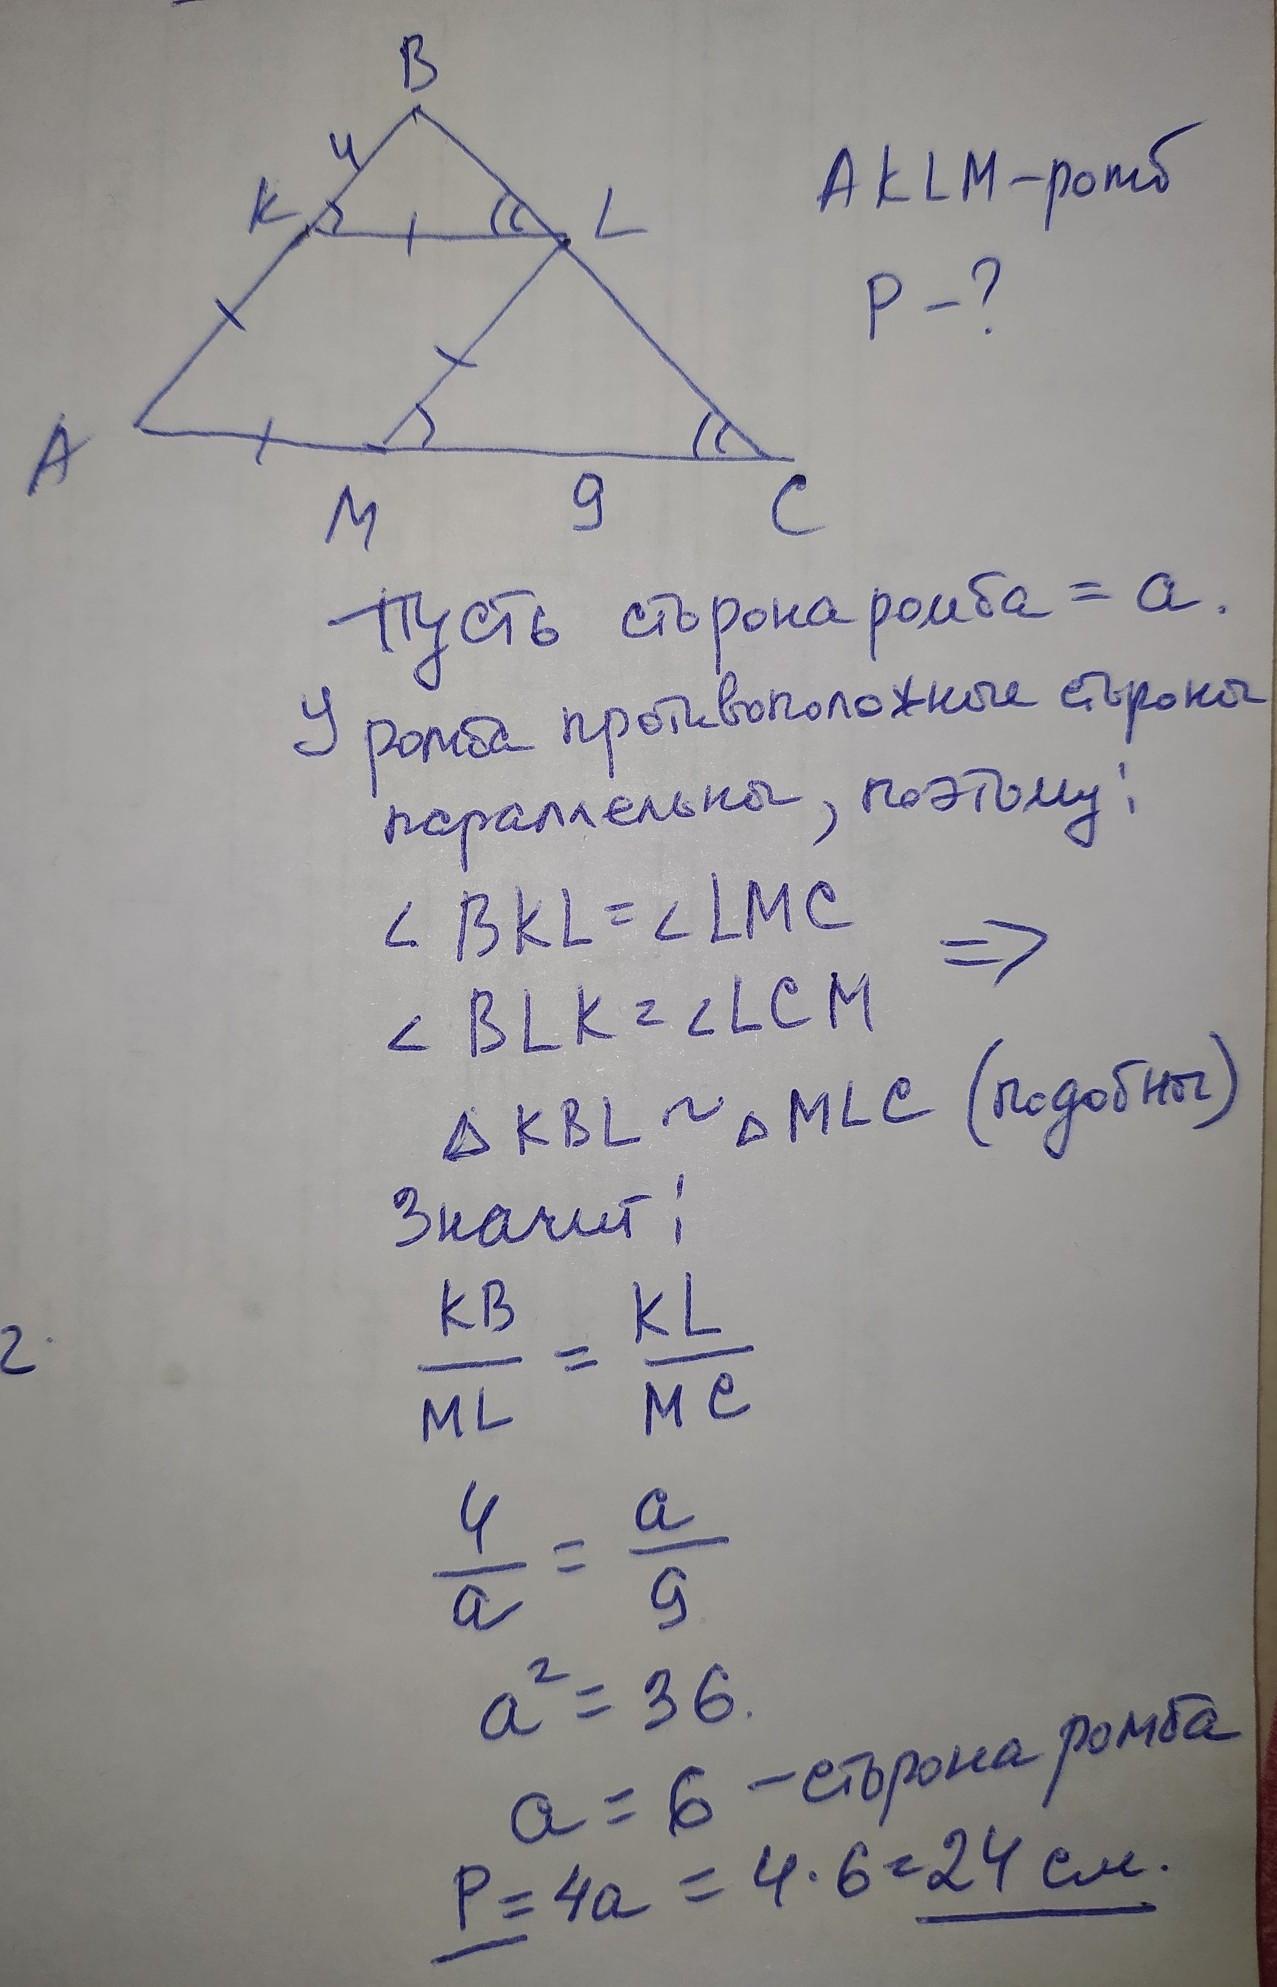 B
4
K
L
AKLM-ромб
P-?
A
M
9
C
Пусть сторона ромба = a.
У ромба противоположные стороны
параллельны, поэтому:
∠BKL=∠LMC
=>
∠BLK=∠LCM
△KBL~△MLC (подобны)
Значит:
KB/ML = KL/MC
2.
4/a = a/9
a²=36.
a=6 -сторона ромба
P=4a=4·6=24 см.